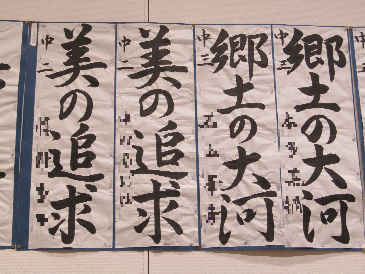 郷土の大河
中三
郷土の大河
中三
美の追求
中二
美の追求
中二